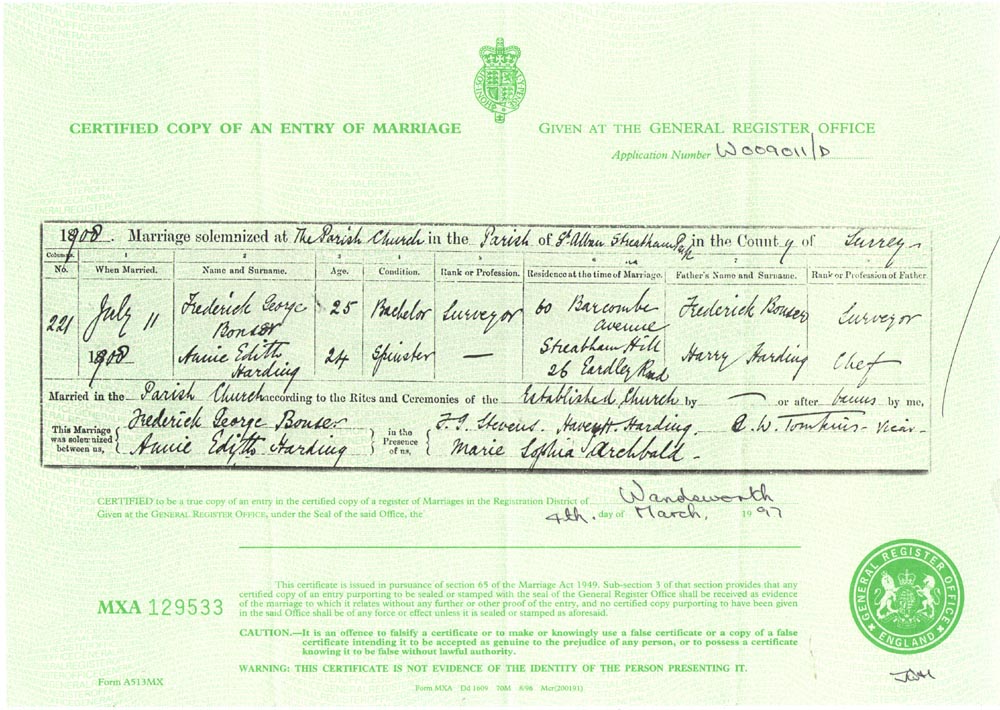 CERTIFIED COPY OF AN ENTRY OF MARRIAGE GIVEN AT THE GENERAL REGISTER OFFICE
Application Number W009011/D
1908. Marriage solemnized at The Parish Church in the Parish of St Alban Streatham Park in the County of Surrey
Columns. 1 2 3 4 5 6 7 8
No. When Married. Name and Surname. Age. Condition. Rank or Profession. Residence at the time of Marriage. Father's Name and Surname. Rank or Profession of Father.
221 July 11 1908 Frederick George Bonser 25 Bachelor Surveyor 60 Barcombe avenue Streatham Hill Frederick Bonser Surveyor
Annie Edith Harding 24 Spinster — 26 Eardley Road Harry Harding Chef
Married in the Parish Church according to the Rites and Ceremonies of the Established Church by — or after banns by me,
This Marriage was solemnized between us, Frederick George Bonser Annie Edith Harding in the Presence of us, F. J. Stevens. Harding. Marie Sophia Archbald - C. W. Tomkins - Vicar -
CERTIFIED to be a true copy of an entry in the certified copy of a register of Marriages in the Registration District of Wandsworth
Given at the GENERAL REGISTER OFFICE, under the Seal of the said Office, the 4th. day of March, 1997
MXA 129533
This certificate is issued in pursuance of section 65 of the Marriage Act 1949. Sub-section 3 of that section provides that any
certified copy of an entry purporting to be sealed or stamped with the seal of the General Register Office shall be received as evidence
of the marriage to which it relates without any further or other proof of the entry, and no certified copy purporting to have been given
in the said Office shall be of any force or effect unless it is sealed or stamped as aforesaid.
CAUTION.—It is an offence to falsify a certificate or to make or knowingly use a false certificate or a copy of a false
certificate intending it to be accepted as genuine to the prejudice of any person, or to possess a certificate
knowing it to be false without lawful authority.
WARNING: THIS CERTIFICATE IS NOT EVIDENCE OF THE IDENTITY OF THE PERSON PRESENTING IT.
GENERAL REGISTER OFFICE
ENGLAND
Form A513MX
Form MXA Dd 1609 70M 8/96 Mcr(200191)